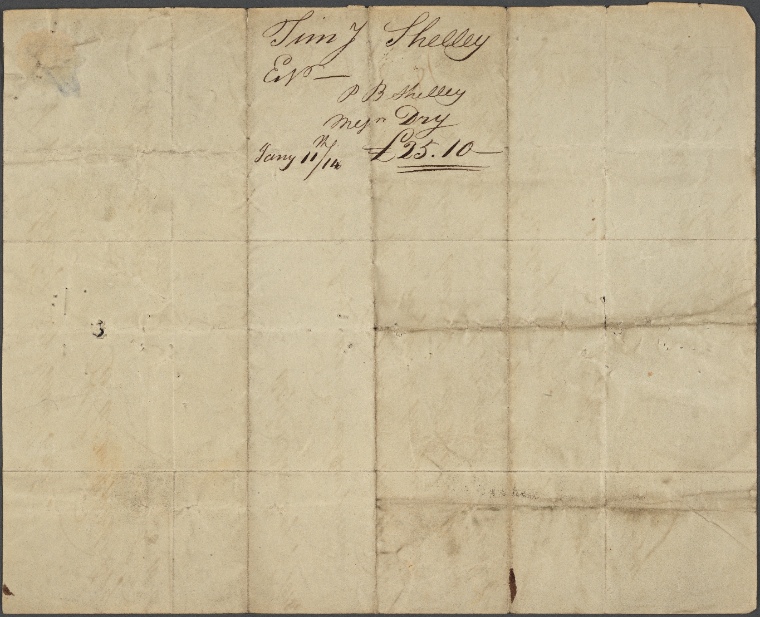 Timy Shelley
Esqr
P B Shelley
Dry
Jany 11th/14 £25.10
3